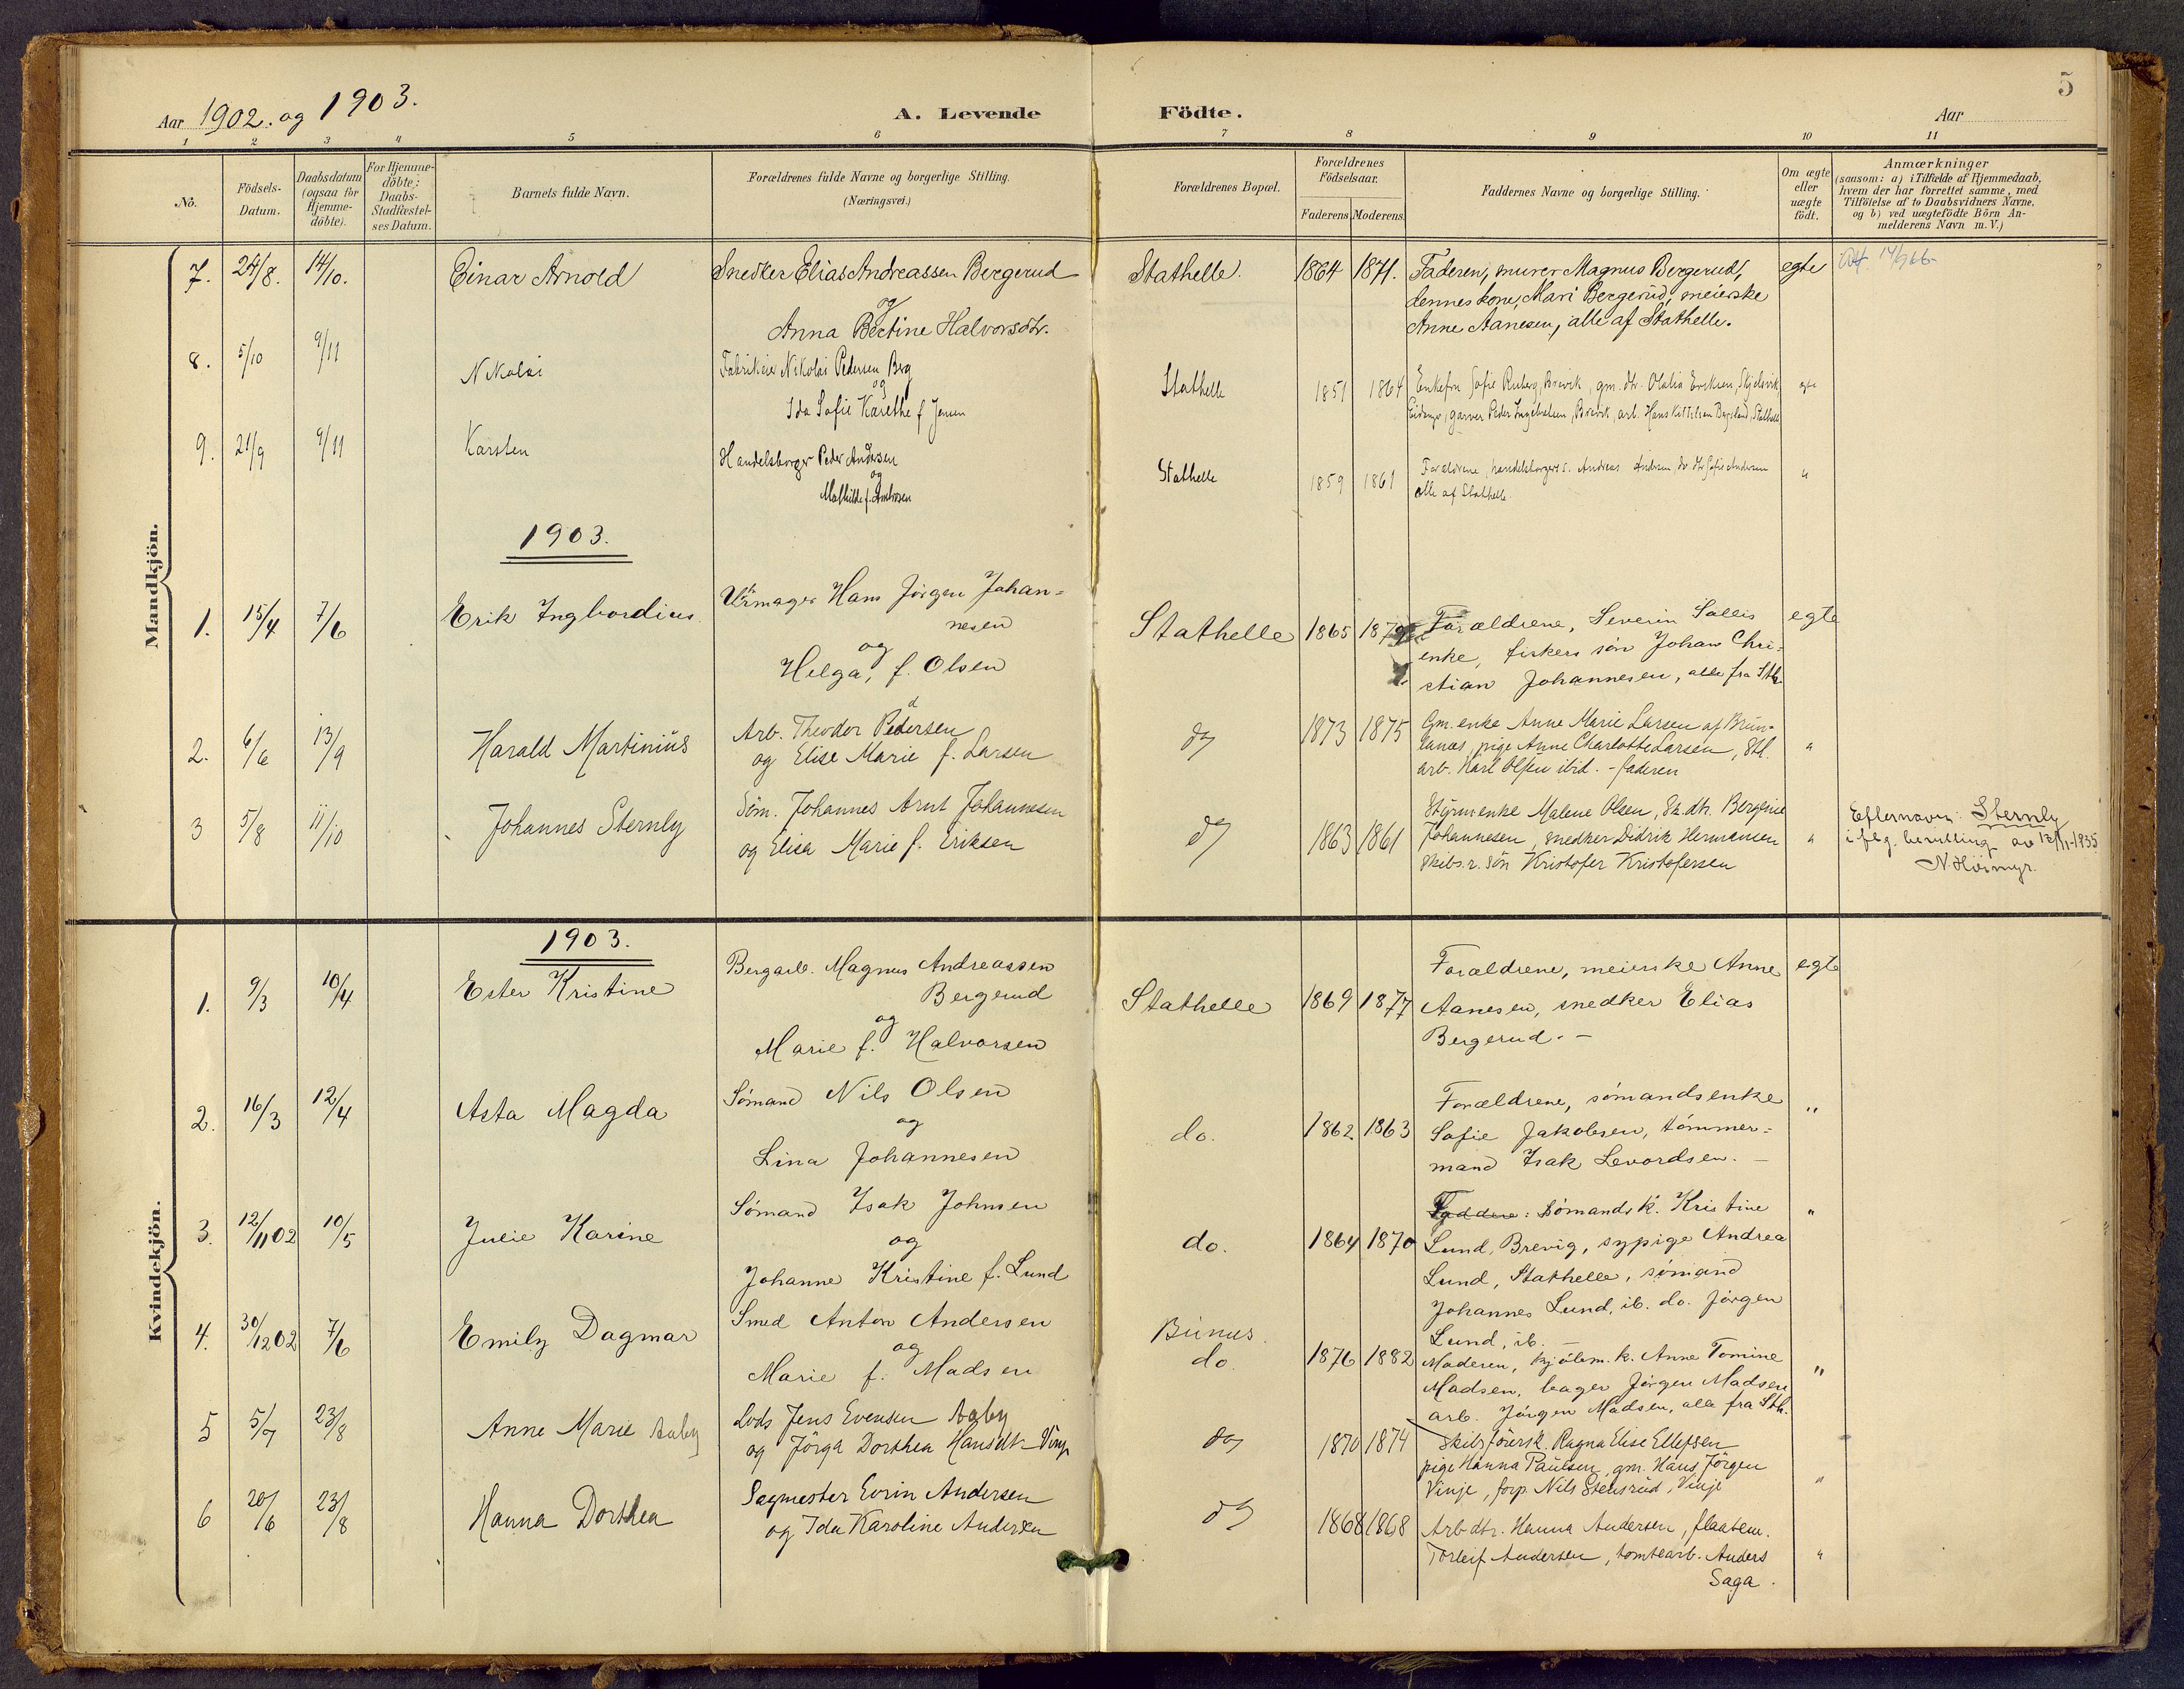 Aar 1902. og 1903.
A. Levende Födte.
Aar
5
1 2 3 4 5 6 7 8 9 10 11
No.
Födsels-Datum.
Daabsdatum (ogsaa for Hjemmedöbte).
For Hjemmedöbte: Daabs-Stadfæstelses Datum.
Barnets fulde Navn.
Forældrenes fulde Navne og borgerlige Stilling. (Næringsvei.)
Forældrenes Bopæl.
Forældrenes Födselsaar.
Faderens Moderens
Faddernes Navne og borgerlige Stilling.
Om ægte eller uægte födt.
Anmærkninger
(saasom: a) i Tilfælde af Hjemmedaab,
hvem der har forrettet samme, med
Tilföielse af to Daabsvidners Navne,
og b) ved uægtefödte Börn An-
melderens Navn m. V.)
Mandkjön.
7. 24/8. 14/10. Einar Arnold
Snedker Elias Andreassen Bergerud
og
Anna Bertine Halvorsdtr.
Stathelle. 1864 1871.
Faderen, murer Magnus Bergerud,
dennes kone, Mari Bergerud, meierske
Anne Aanesen, alle af Stathelle.
egte
8. 5/10 9/11 Nikolai
Fabrikeier Nikolai Pedersen Berg
og
Ida Sofie Karethe f Jensen
Stathelle 1851 1864
Enkefru Sofie Ruberg, Brevik, gm. dtr. Olalia Eriksen, Skjelsvik,
Eidanger, garver Peder Ingebretsen, Brevik, arb. Hans Kittilsen Bagsland, Stathelle
egte
9. 21/9 9/11 Karsten
Handelsborger Peder Andersen
og
Mathilde f. Ambrosen
Stathelle 1859 1861
Forældrene, handelsborgers s. Andreas Andersen, do dtr Sofie Andersen
alle af Stathelle
"
1903.
1. 15/4 7/6 Erik Ingbordius
Urmager Hans Jörgen Johan-
nesen
og
Helga, f. Olsen
Stathelle 1865 1879
Forældrene, Severin Sallis
enke, fiskers sön Johan Chri-
stian Johannesen, alle fra Sth.
egte
2. 6/6 13/9 Harald Martinius
Arb. Theodor Pedersen
og Elise Marie f. Larsen
do 1873 1875
Gm. enke Anne Marie Larsen af Brun-
lanæs, pige Anne Charlotte Larsen, Sth.
arb. Karl Olsen ibid. - faderen
"
3 5/8 11/10 Johannes Sternly
Söm. Johannes Arnt Johannesen
og Elisa Marie f. Eriksen
do 1863 1861
Styrm enke Malene Olsen, Sk. dtr. Bergine
Johannesen, snedker Didrik Hermansen
Skibs.r. sön Kristofer Kristofersen
"
Efternavn: Sternly
i flg. bevilling av 12/11-1935
N. Höimyr.
Kvindekjön.
1903.
1. 9/3 10/4 Ester Kristine
Bergarb. Magnus Andreassen
Bergerud
og
Marie f. Halvorsen
Stathelle 1869 1877
Forældrene, meierske Anne
Aanesen, snedker Elias
Bergerud. -
egte
2. 16/3 12/4 Asta Magda
Sömand Nils Olsen
og
Lina Johannesen
do. 1862 1863
Forældrene, sömandsenke
Sofie Jakobsen, tömmer-
mand Isak Levordsen. -
"
3. 12/11 02 10/5 Julie Karine
Sömand Isak Johnsen
og
Johanne Kristine f. Lund
do. 1864 1870
Faddere: Sömands k. Kristine
Lund, Brevig, sypige Andrea
Lund, Stathelle, sömand
Johannes Lund, ib. do. Jörgen
Lund, ib. -
"
4. 30/12 02 7/6 Emily Dagmar
Smed Anton Andersen
og
Marie f. Madsen
do. 1876 1882
Moderen, kjöbm. k. Anne Tomine
Madsen, bager Jörgen Madsen
arb. Jörgen Madsen, alle fra Sth.
"
5 5/7 23/8 Anne Marie Aaby
Lods Jens Evensen Aaby
og Jörga Dorthea Hansdtr Vinje
do 1870 1874
Skibsförersk. Ragna Elise Ellefsen
pige Hanna Paulsen, gm. Hans Jörgen
Vinje, forp. Nils Stensrud, Vinje
"
6 20/6 23/8 Hanna Dorthea
Sagmester Evrin Andersen
og Ida Karoline Andersen
do 1868 1868
Arb dtr. Hanna Andersen, flaatem.
Torleif Andersen, tomtearb. Anders
Saga.
"